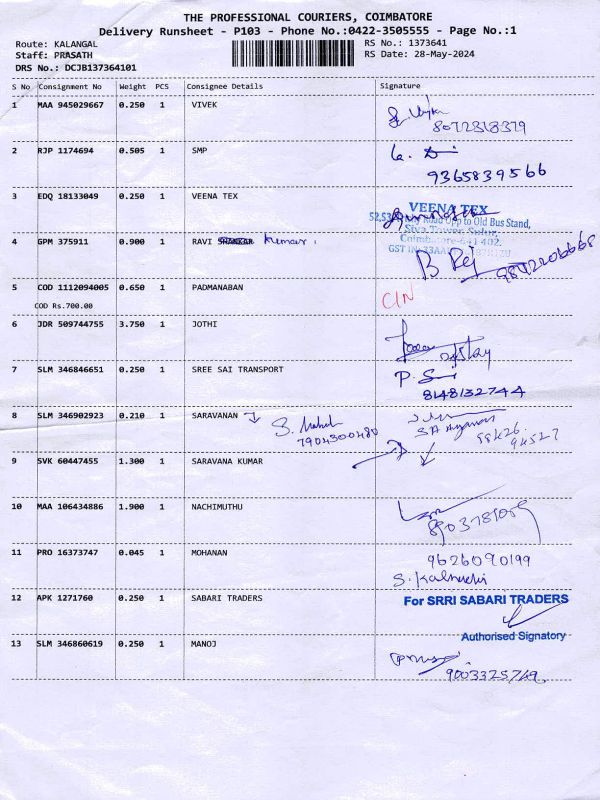 THE PROFESSIONAL COURIERS, COIMBATORE
Delivery Runsheet - P103 - Phone No.:0422-3505555 - Page No.:1
Route: KALANGAL
RS No.: 1373641
Staff: PRASATH
RS Date: 28-May-2024
DRS No.: DCJB137364101
S No Consignment No Weight PCS Consignee Details Signature
1 MAA 945029667 0.250 1 VIVEK
8072318379
2 RJP 1174694 0.505 1 SMP
9365839566
3 EDQ 18133049 0.250 1 VEENA TEX
VEENA TEX
Opp to Old Bus Stand,
Siva Tower, Sulur,
Coimbatore-641 402.
4 GPM 375911 0.900 1 RAVI SHANKAR Kumar.
B Rej
9842206668
5 COD 1112094005 0.650 1 PADMANABAN
C/N
COD Rs.700.00
6 JDR 509744755 3.750 1 JOTHI
7 SLM 346846651 0.250 1 SREE SAI TRANSPORT
P. Sri
8148132744
8 SLM 346902923 0.210 1 SARAVANAN
7904300480
99426
94527
9 SVK 60447455 1.300 1 SARAVANA KUMAR
10 MAA 106434886 1.900 1 NACHIMUTHU
11 PRO 16373747 0.045 1 MOHANAN
9626090199
12 APK 1271760 0.250 1 SABARI TRADERS
For SRRI SABARI TRADERS
Authorised Signatory
13 SLM 346860619 0.250 1 MANOJ
9003325749.